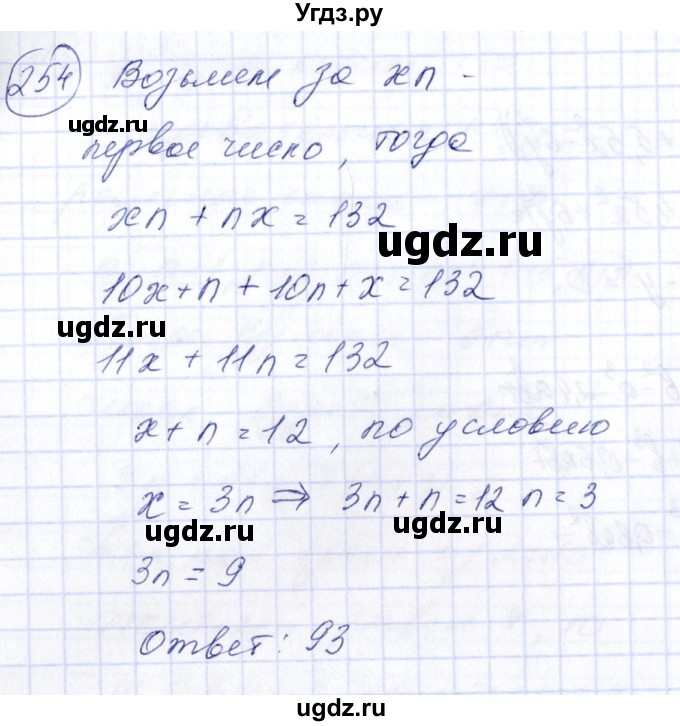 Угдз.ру
254 Возьмем за xn -
ugdz.ru
первое число, тогда
xn + nx = 132
ugdz.ru
10x + n + 10n + x = 132
ugdz.ru
11x + 11n = 132
x + n = 12, по условию
x = 3n ⇒ 3n + n = 12 n = 3
ugdz.ru ugdz.ru
3n = 9
Ответ: 93
ugdz.ru